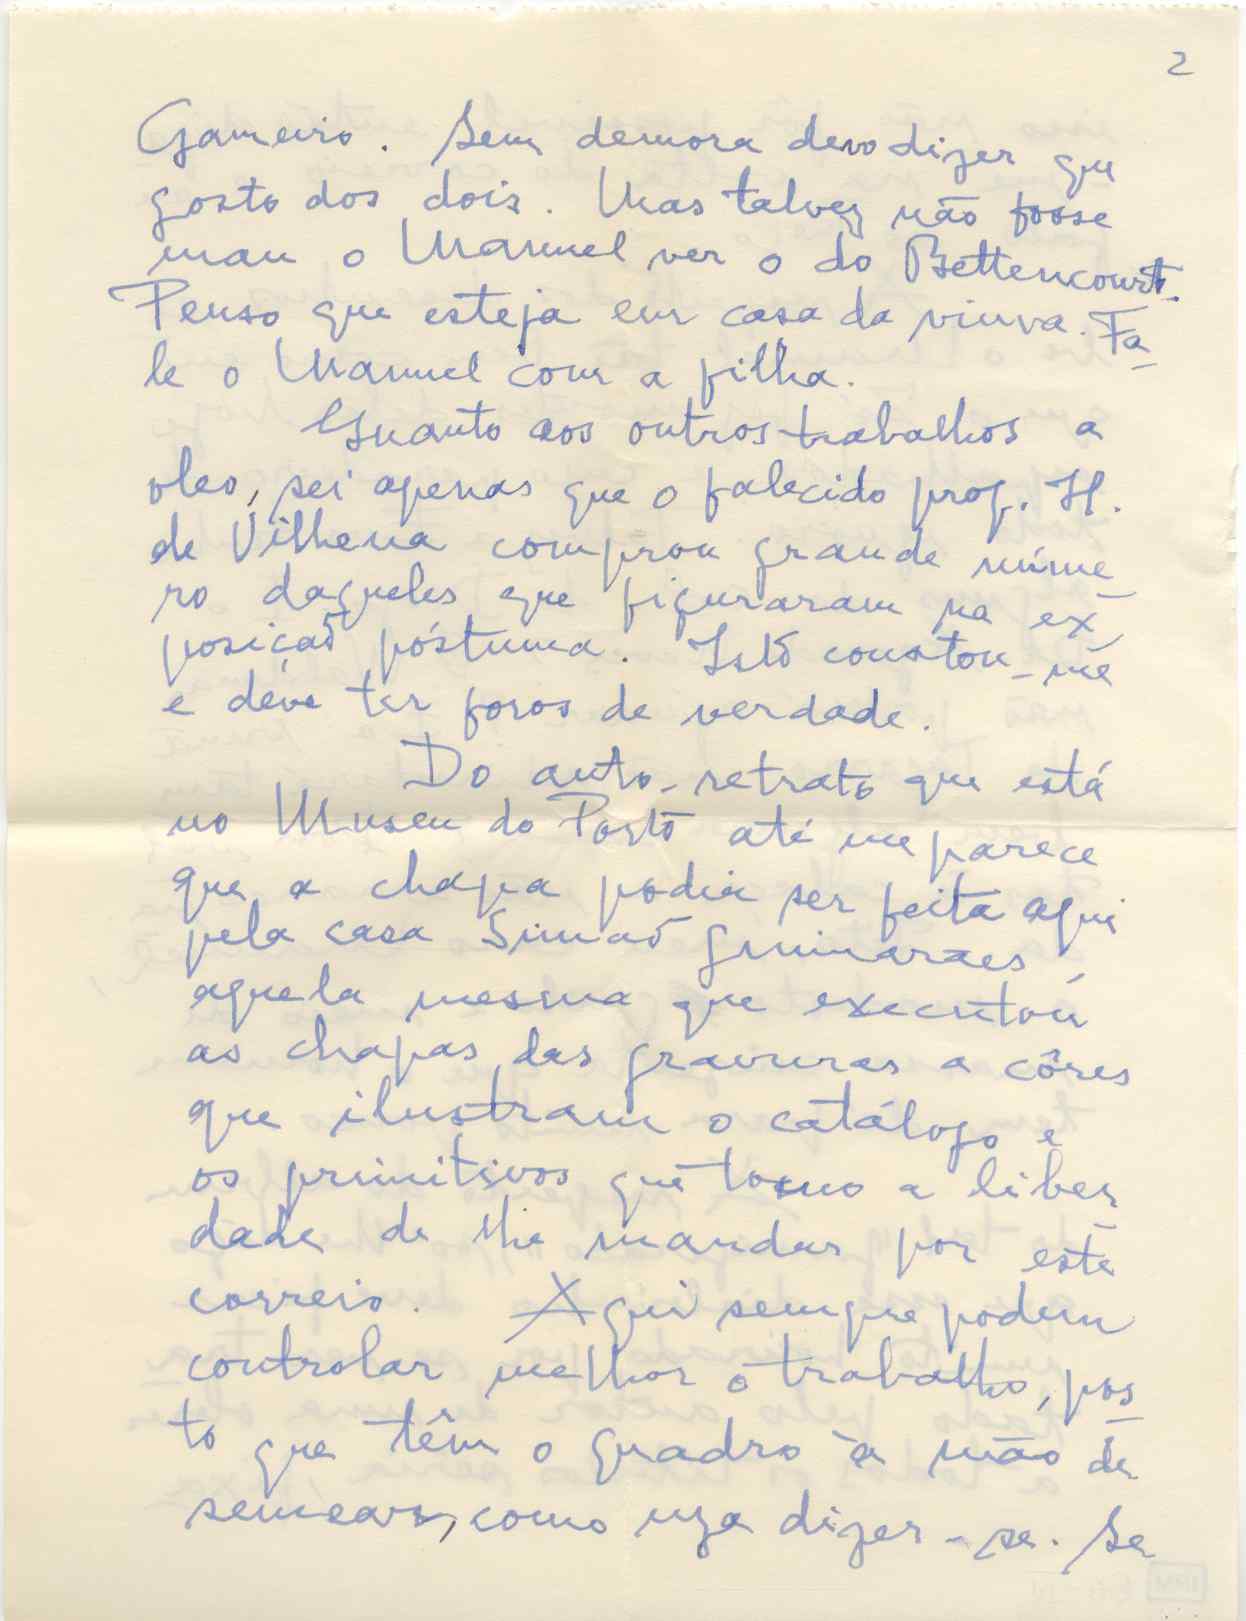 2
Gameiro. Sem demora devo dizer que
gosto dos dois. Mas talvez não fosse
mau o Manuel ver o do Bettencourt.
Penso que esteja em casa da viuva. Fa-
le o Manuel com a filha.
Quanto aos outros trabalhos a
oleo, sei apenas que o falecido prof. H.
de Vilhena comprou grande núme-
ro daqueles que figuraram na ex-
posição póstuma. Isto constou-me
e deve ter foros de verdade.
Do auto-retrato que está
no Museu do Porto até me parece
que a chapa podia ser feita aqui
pela casa Simão Guimarães,
aquela mesma que executou
as chapas das gravuras a côres
que ilustram o catálogo e
os primitivos que tomo a liber-
dade de lhe mandar por este
correio. Aqui sempre podem
controlar melhor o trabalho, pos-
to que têm o quadro à mão de
semear, como uza dizer-se. Se